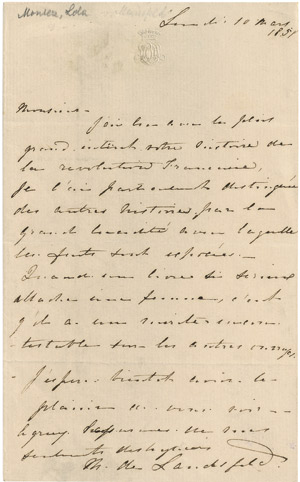 Montez, Lola
Lundi 10 Mars
1851
Monsieur
J'ai lu avec le plus
grand intérêt votre histoire de
la revolution Francaise,
Je l'ai particulièrement distinguée
des autres histoires, par la
grande lucidité avec laquelle
les faits sont exposés.
Quand un livre si sérieux
attache une femme, c'est
qu'il a un mérite incon-
testable sur les autres ouvrages.
J'espère bientôt avoir le
plaisir de vous voir
de mes
sentiments distingués
M. de Landsfeld